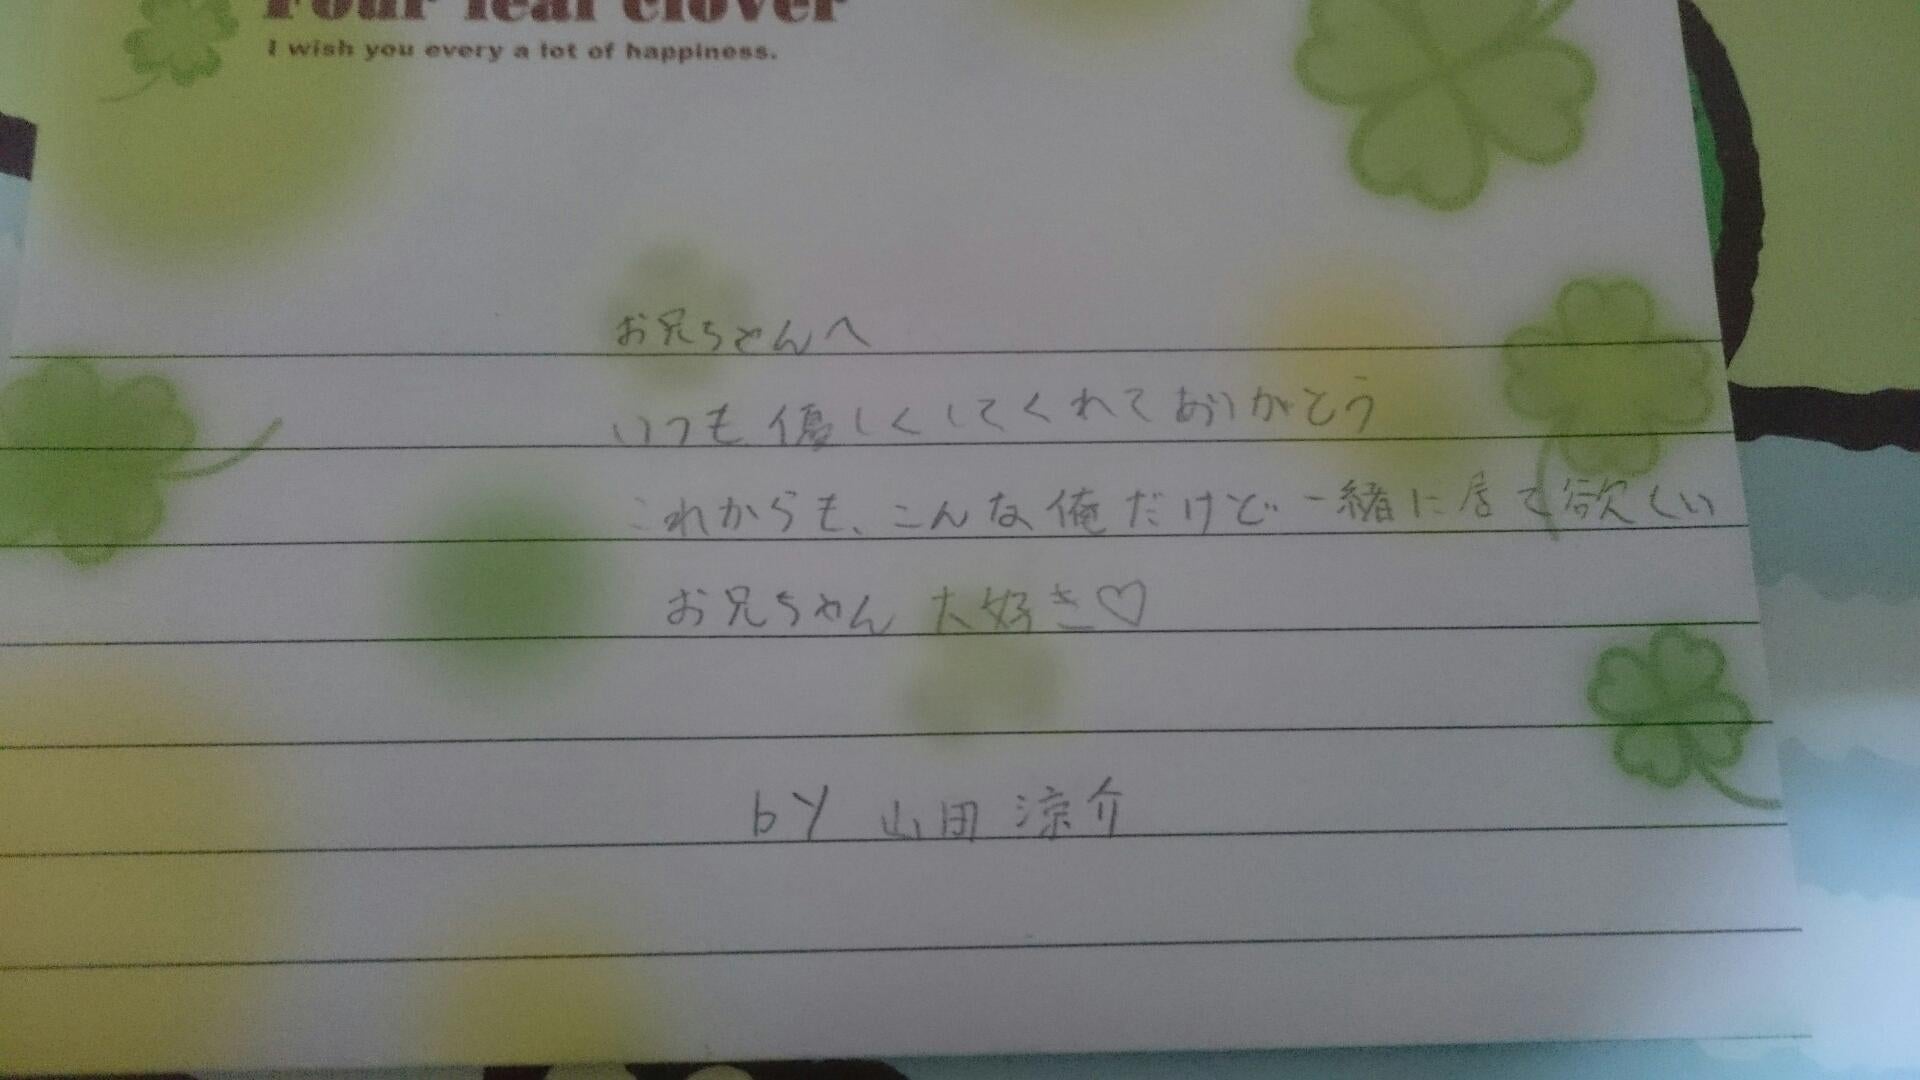 Four leaf clover
I wish you every a lot of happiness.
お兄ちゃんへ
いつも優しくしてくれてありがとう
これからも、こんな俺だけど一緒に居て欲しい
お兄ちゃん大好き♡
by 山田 涼介